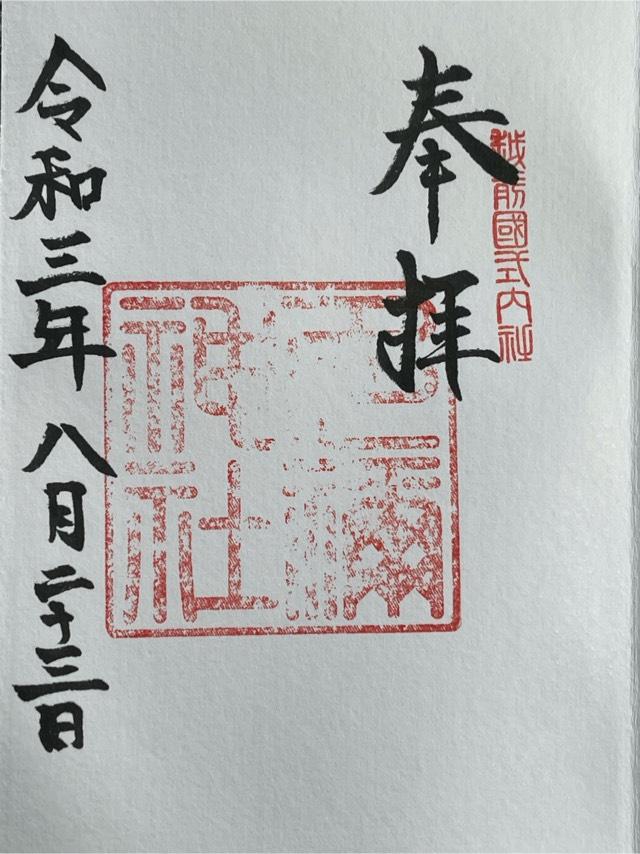 奉拝
越前國式内社
神社
令和三年八月二十三日